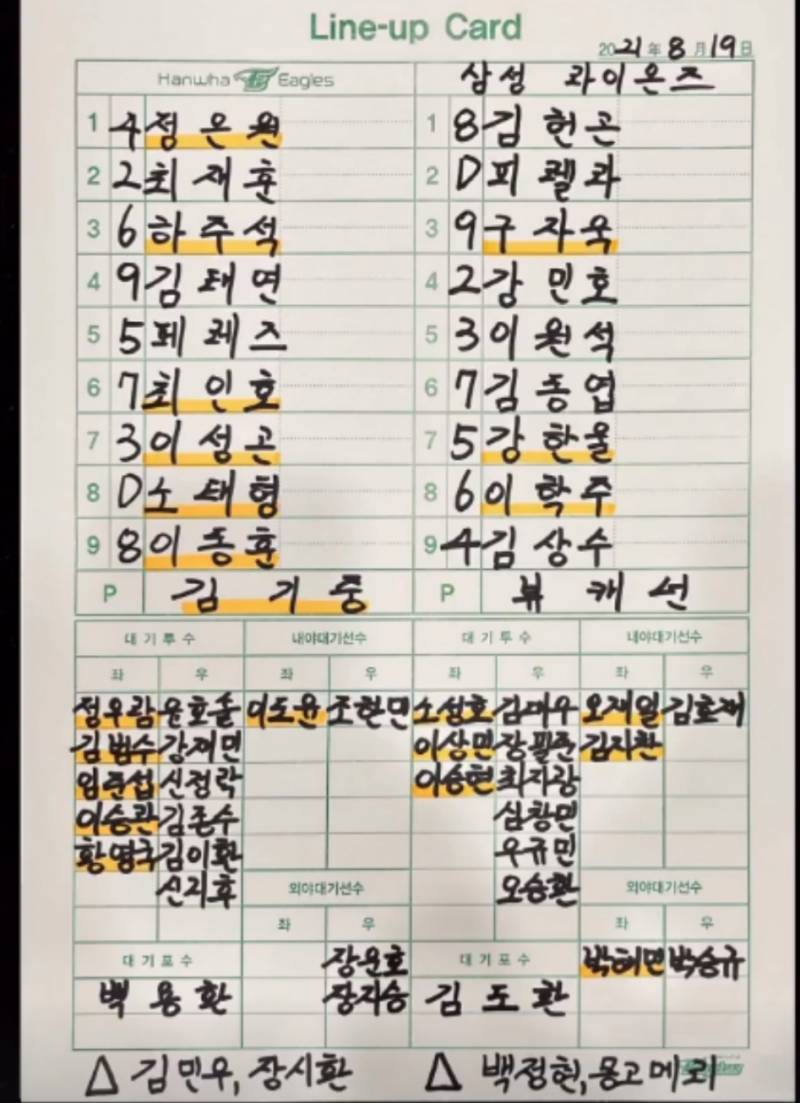 Line-up Card
2021年 8月 19日
Hanwha Eagles 삼성 라이온즈
1 4 정은원 1 8 김헌곤
2 2 최재훈 2 D 피렐라
3 6 하주석 3 9 구자욱
4 9 김태연 4 2 강민호
5 5 페레즈 5 3 이원석
6 7 최인호 6 7 김동엽
7 3 이성곤 7 5 강한울
8 D 노태형 8 6 이학주
9 8 이동훈 9 4 김상수
P 김기중 P 뷰캐넌
대기투수 내야대기선수 대기투수 내야대기선수
좌 우 좌 우 좌 우 좌 우
정우람 윤호솔 이도윤 조한민 노성호 김대우 오재일 김호재
김범수 강재민 이상민 장필준 김지찬
임준섭 신정락 이승현 최지광
이승관 김종수 심창민
황영국 김이환 우규민
신지후 외야대기선수 오승환 외야대기선수
좌 우 좌 우
대기포수 장운호 대기포수 박해민 박승규
백용환 장지승 김도환
△ 김민우, 장시환 △ 백정현, 몽고메리